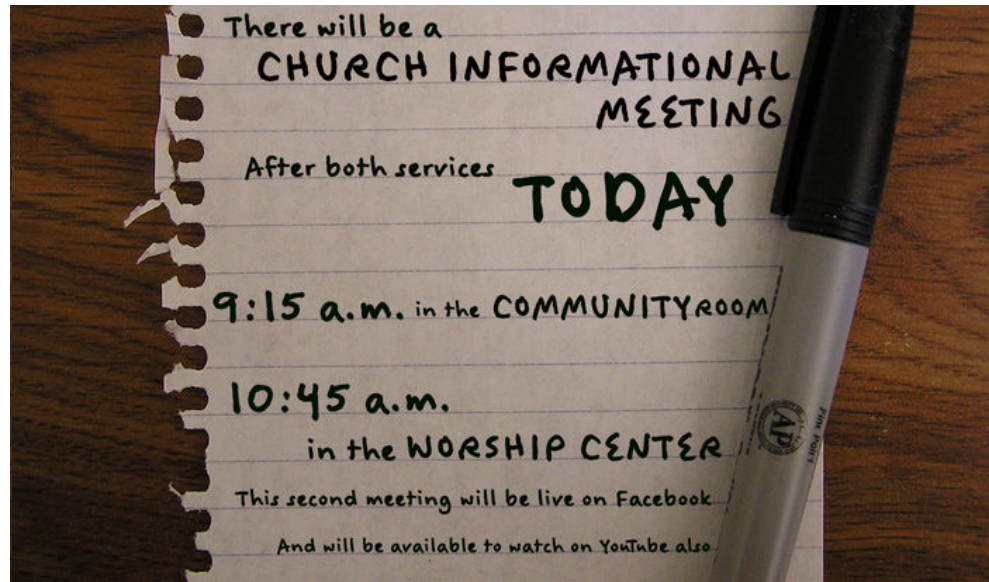 There will be a
CHURCH INFORMATIONAL
MEETING
After both services
TODAY
9:15 a.m. in the COMMUNITY ROOM
10:45 a.m.
in the WORSHIP CENTER
This second meeting will be live on Facebook
And will be available to watch on YouTube also
AP
Fine Point